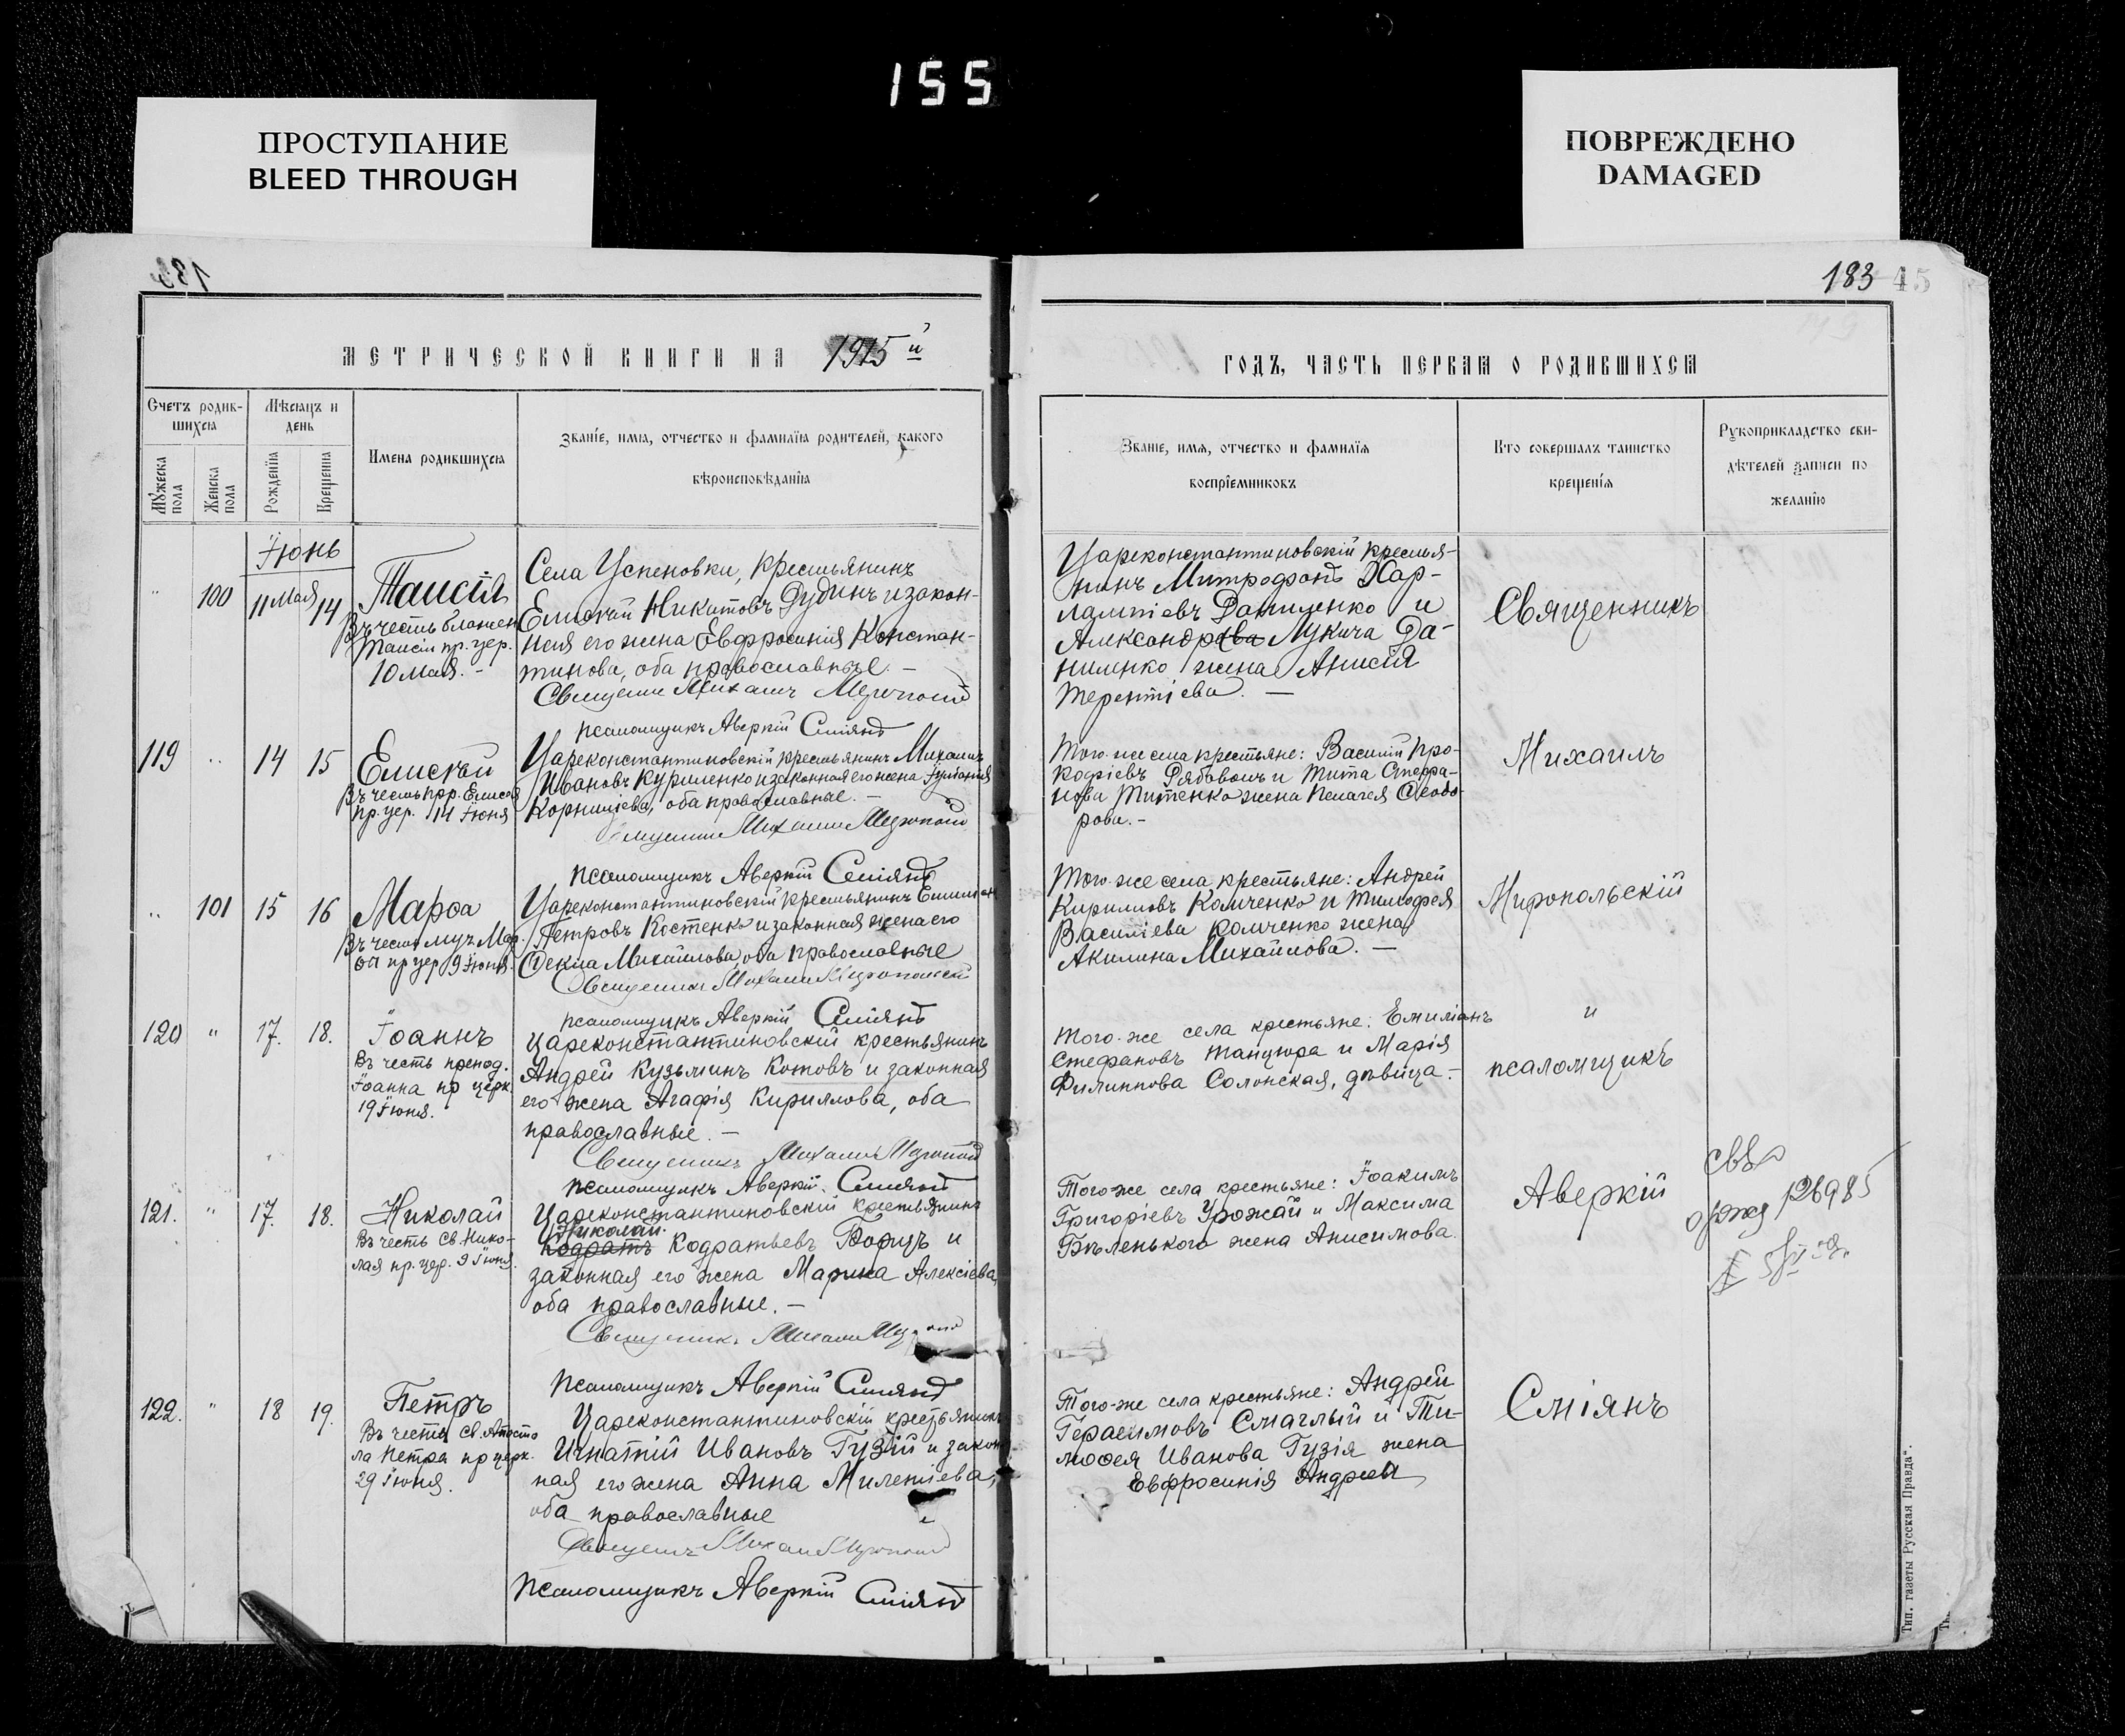 155
ПРОСТУПАНИЕ
BLEED THROUGH
ПОВРЕЖДЕНО
DAMAGED
183
45
МЕТРИЧЕСКОЙ КНИГИ НА 1915 й
ГОДЪ, ЧАСТЬ ПЕРВАЯ О РОДИВШИХСЯ
Счетъ родив-
шихся
Мѣсяцъ и
день
Мужеска
пола
Женска
пола
Рожденія
Крещенія
Имена родившихся
Званіе, имя, отчество и фамилія родителей, какого
вѣроисповѣданія
Званіе, имя, отчество и фамилія
воспріемниковъ
Кто совершалъ таинство
крещенія
Рукоприкладство сви-
дѣтелей записи по
желанію
Іюнь
" 100 11 Мая 14
Таисія
Въ честь блажен
Таисіи пр. цер.
10 Мая. -
Села Успеновки, крестьянинъ
Елисей Никитовъ Дудинъ и закон-
ная его жена Евфросинія Констан-
тинова, оба православные. -
Священникъ Михаилъ
псаломщикъ Аверкій Сміянъ
Цареконстантиновскій крестья-
нинъ Митрофанъ Хар-
лампіевъ Даниленко и
Александра Лукича Да-
ниленко жена Анисія
Терентіева. —
Священникъ
119 " 14 15
Елисей
Въ честь прр. Елисея
пр. цер. 14 Іюня
Цареконстантиновскій крестьянинъ Михаилъ
Ивановъ Куриленко и законная его жена Іуліанія
Корниліева, оба православные. -
Священникъ Михаилъ
псаломщикъ Аверкій Сміянъ
Того-же села крестьяне: Василій Про-
кофіевъ и Тита Стефа-
нова Титенко жена Пелагея Ѳеодо-
рова. -
Михаилъ
" 101 15 16
Марѳа
Въ честь муч. Мар-
ѳы пр. цер. 9 Іюня.
Цареконстантиновскій крестьянинъ Емиліан
Петровъ Костенко и законная жена его
Ѳекла Михайлова, оба православные
Священникъ Михаилъ Миропольскій
псаломщикъ Аверкій Сміянъ
Того-же села крестьяне: Андрей
Кирилловъ Колченко и Тимофея
Василіева Колченко жена
Акилина Михайлова. —
Миропольскій
120 " 17. 18.
Іоаннъ
Въ честь препод.
Іоанна пр церк
19 Іюня.
Цареконстантиновскій крестьянинъ
Андрей Кузьминъ Котовъ и законная
его жена Агафія Кириллова, оба
православные. —
Священникъ Михаилъ
псаломщикъ Аверкій Сміянъ
Того-же села крестьяне: Емиліанъ
Стефановъ Танцюра и Марія
Филиппова Солонская, дѣвица. -
и
псаломщикъ
121. " 17. 18.
Николай
Въ честь Св. Нико-
лая пр. цер. 9 Іюня.
Цареконстантиновскій крестьянинъ
Николай
Кодратъ Кодратьевъ и
законная его жена Марина Алексіева,
оба православные. —
Священникъ Михаилъ
псаломщикъ Аверкій Сміянъ
Того-же села крестьяне: Іоакимъ
Григоріевъ Урожай и Максима
Бѣленького жена Анисимова.
Аверкій
122. " 18 19.
Петръ
Въ честь Св. Апосто
ла Петра пр церк.
29 Іюня.
Цареконстантиновскій крестьянинъ
Игнатій Ивановъ Гузій и закон
ная его жена Анна Милетіева,
оба православные
Священникъ Михаилъ
Псаломщикъ Аверкій Сміянъ
Того-же села крестьяне: Андрей
Герасимовъ Смаглый и Ти-
моѳея Иванова Гузія жена
Евфросинія
Сміянъ
Тип. газеты Русская Правда".